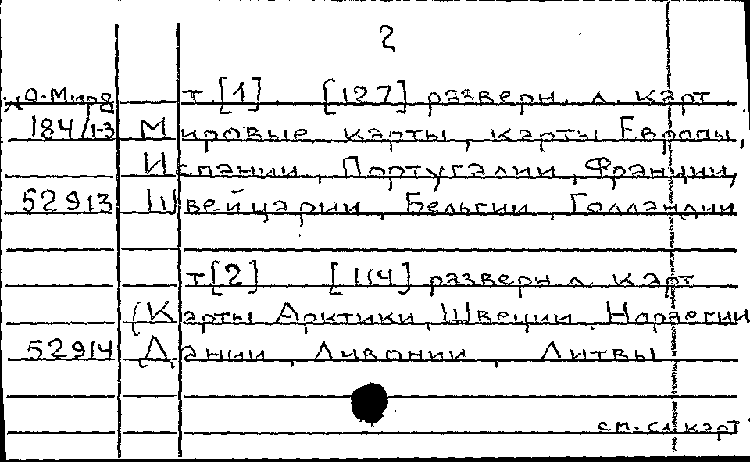 2
О-Мира т. [1]. [127] разверн. л. карт
184/1-3 Мировые карты, карты Европы,
Испании, Португалии, Франции,
52913 Швейцарии, Бельгии, Голландии
т [2] [114] разверн л. карт
(Карты Арктики, Швеции, Норвегии
52914 Дании, Ливонии, Литвы
см. сл карт